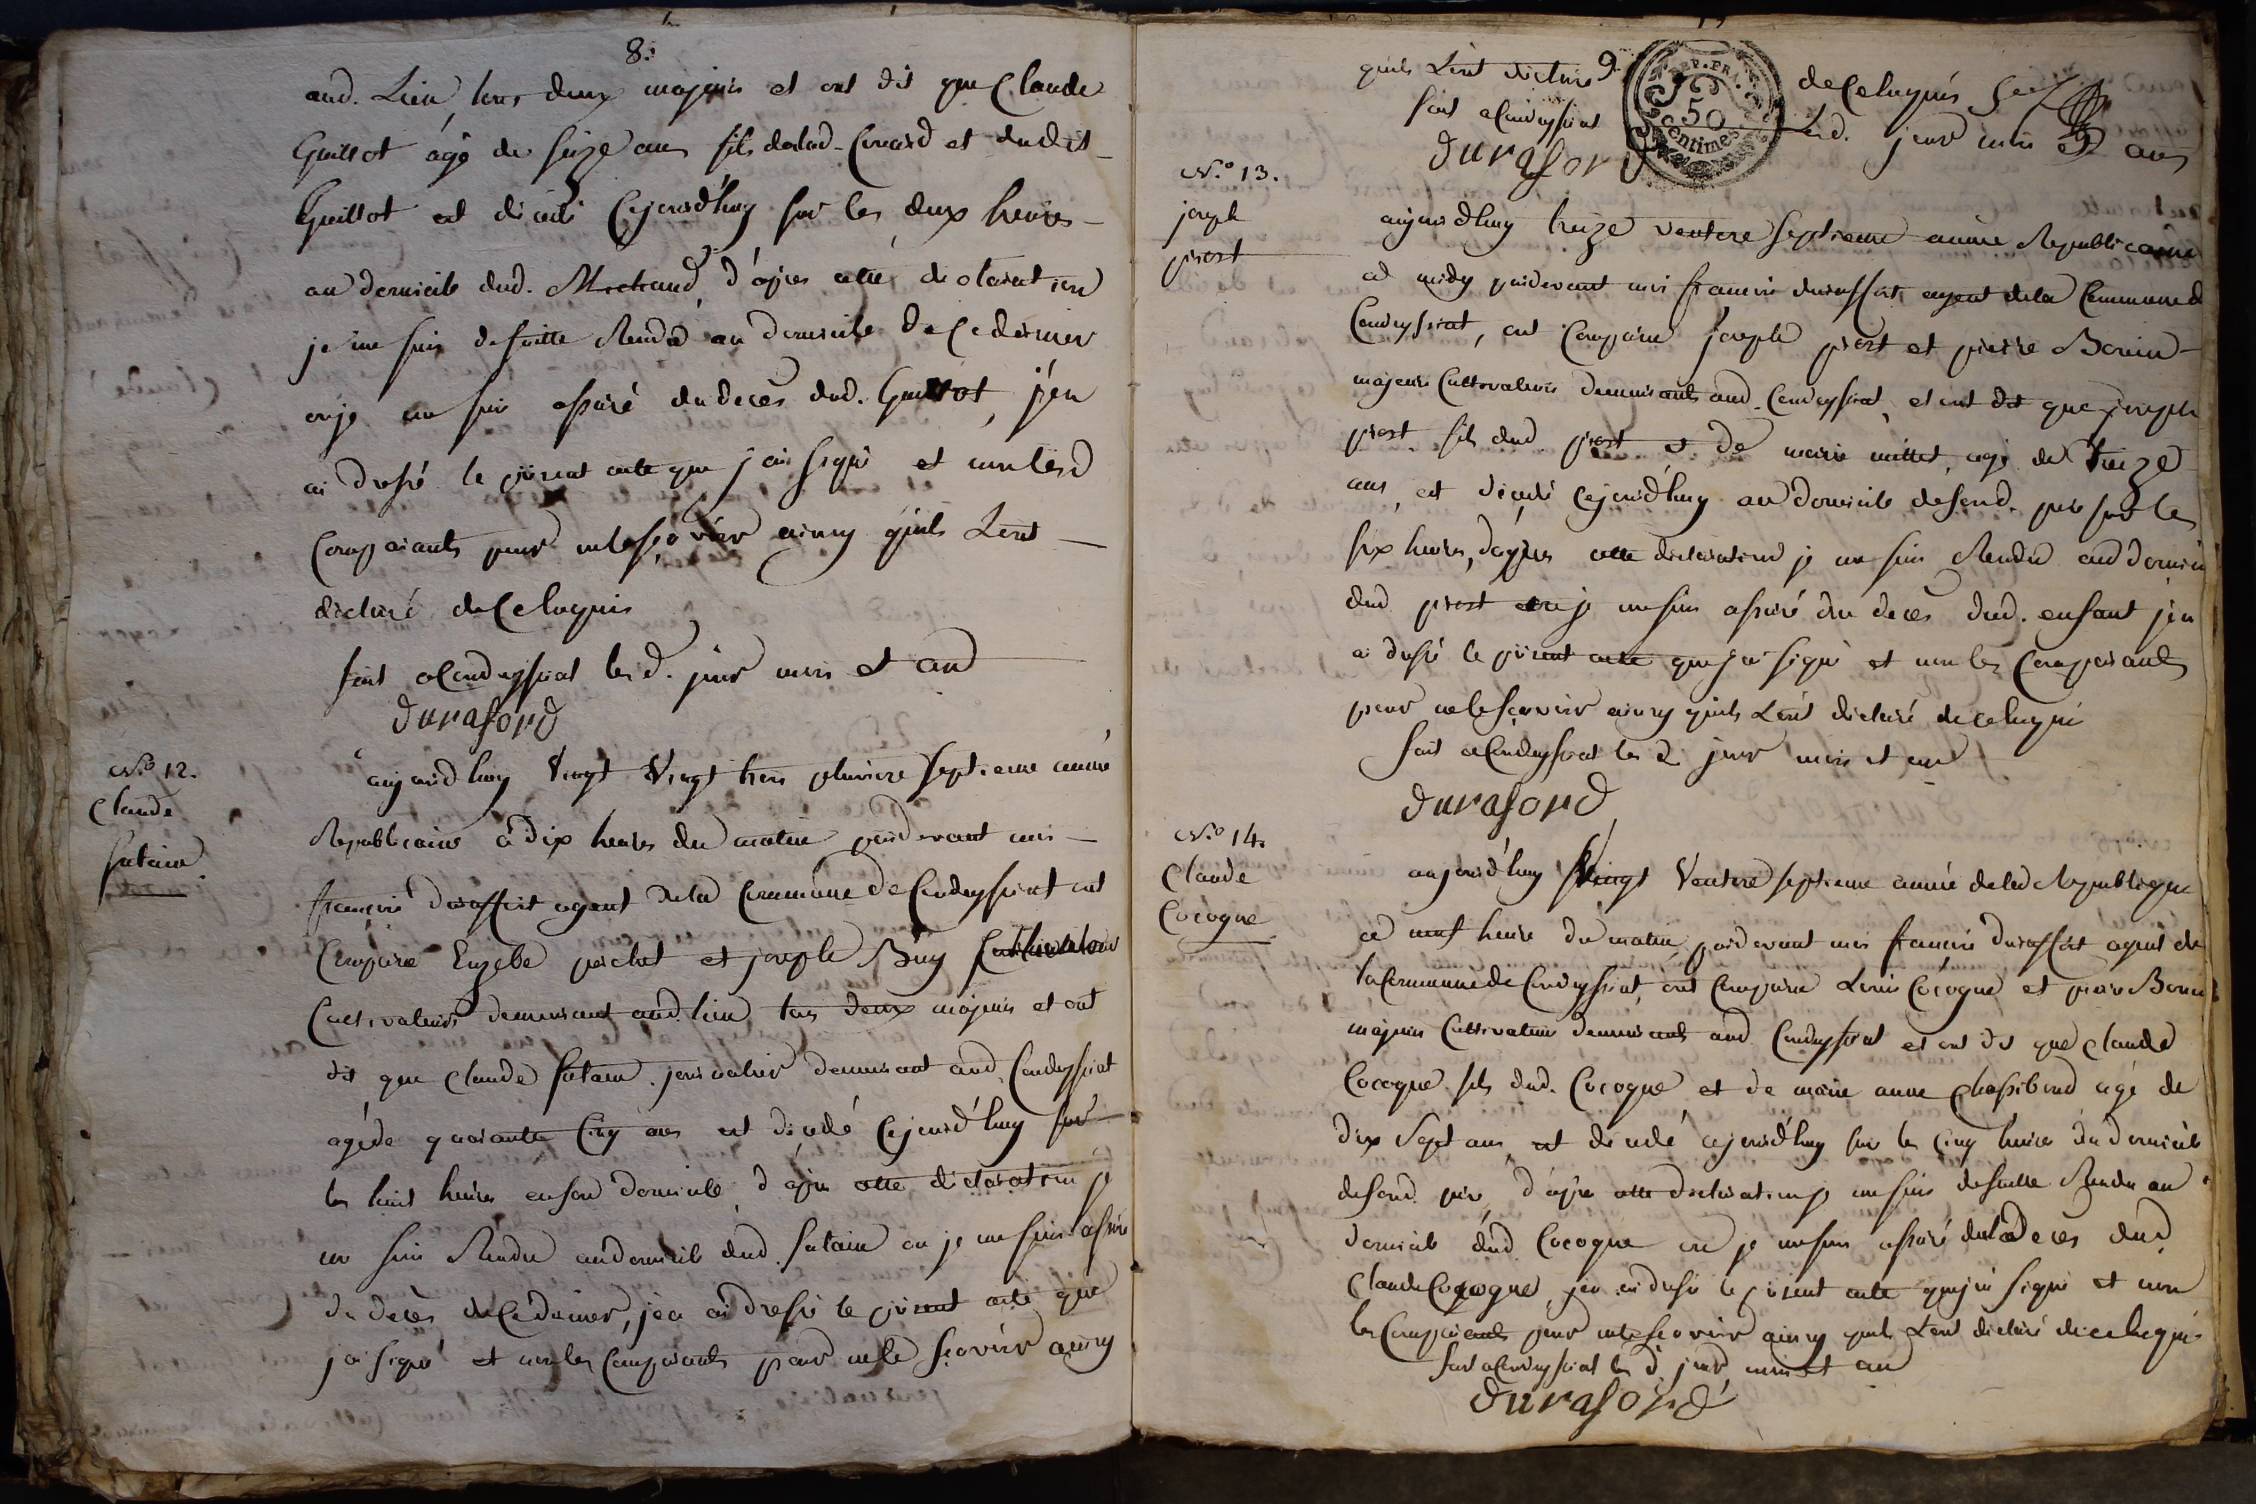 8.
aud. Lieu, tous deux majeurs et ont dit que Claude
Guillot âgé de seize ans fils delad. Convard et dudit
Guillot est décédé Cejourd'huy sur les deux heures
au domicile dud. d'après cette déclaration
je me suis desuitte Rendu au domicile de Ce dernier
ouje me suis assuré du deces dud. Guillot, j'en
ai dressé le présent acte que j'ai signé et non lesd
Comparants pour nele sçavoir ainsy quils Lont
déclaré de Ce Enquis
fait a Condeyssiat les d. jour mois et an
duraford
N.o 12.
Claude
futain
aujourd'huy Vingt Vingt trois pluviose septieme année
Republicaine à dix heures du matin pardevant moi
françois duraffort agent dela Commune de Condeyssiat ont
Comparu Euzebe pochet et joseph Buy
Cultivateurs demeurant aud. lieu, tous deux majeurs et ont
dit que Claude futain journalier demeurant aud. Condeyssiat
agé de quarante Cinq ans est décédé Cejourd'huy sur
les huit heures enson domicile, d'après cette déclaration je
me suis Rendu audomicile dud. futain ou je me suis assuré
du decès de Ce dernier, j'en ai dressé le présent acte que
j'ai signé et non les Comparants pour nele sçavoir ainsy
9.
quils Lont déclaré de Ce Enquis
REP. FRA.
50
Centimes
fait a Condeyssiat Les d. jour mois et an
duraford
N.o 13.
joseph
prost
aujourd'huy treize ventose septieme année Republicaine
a midy pardevant moi françois duraffort agent dela Commune de
Condeyssiat, ont Comparu joseph prost et pierre Bonin
majeurs Cultivateurs demeurants aud. Condeyssiat, et ont dit que joseph
prost fils dud. prost et de marie millet, agé de treize
ans, est décédé cejourd'huy au domicile deson d. pere sur les
six heures, d'après cette déclaration je me suis Rendu aud domicile
dud prost ou je me suis assuré du decès dud. enfant j'en
ai dressé le présent acte que j'ai signé et non les Comparants
pour nele sçavoir ainsy quils Lont déclaré de ce Enquis
fait a Condeyssiat les d. jour mois et an
duraford
N.o 14.
Claude
Cocogne
aujourd'huy Vingt Ventose septieme année dela Republique
a neuf heure du matin pardevant moi françois duraffort agent de
la Commune de Condeyssiat, ont Comparu Louis Cocogne et pierre Bonin
majeurs Cultivateurs demeurants aud Condeyssiat et ont dit que Claude
Cocogne fils dud. Cocogne et de marie anne agé de
dix Sept ans, est décédé cejourd'huy sur les Cinq heures du domicile
deson d. pere, d'après cette declaration je me suis desuitte Rendu au
domicile dud Cocogne ou je me suis assuré du deces dud
Claude Cocogne, j'en ai dressé le présent acte que j'ai signé et non
les Comparants pour nele sçavoir ainsy quils Lont déclaré de ce Enquis
fait a Condeyssiat les d. jour mois et an
duraford